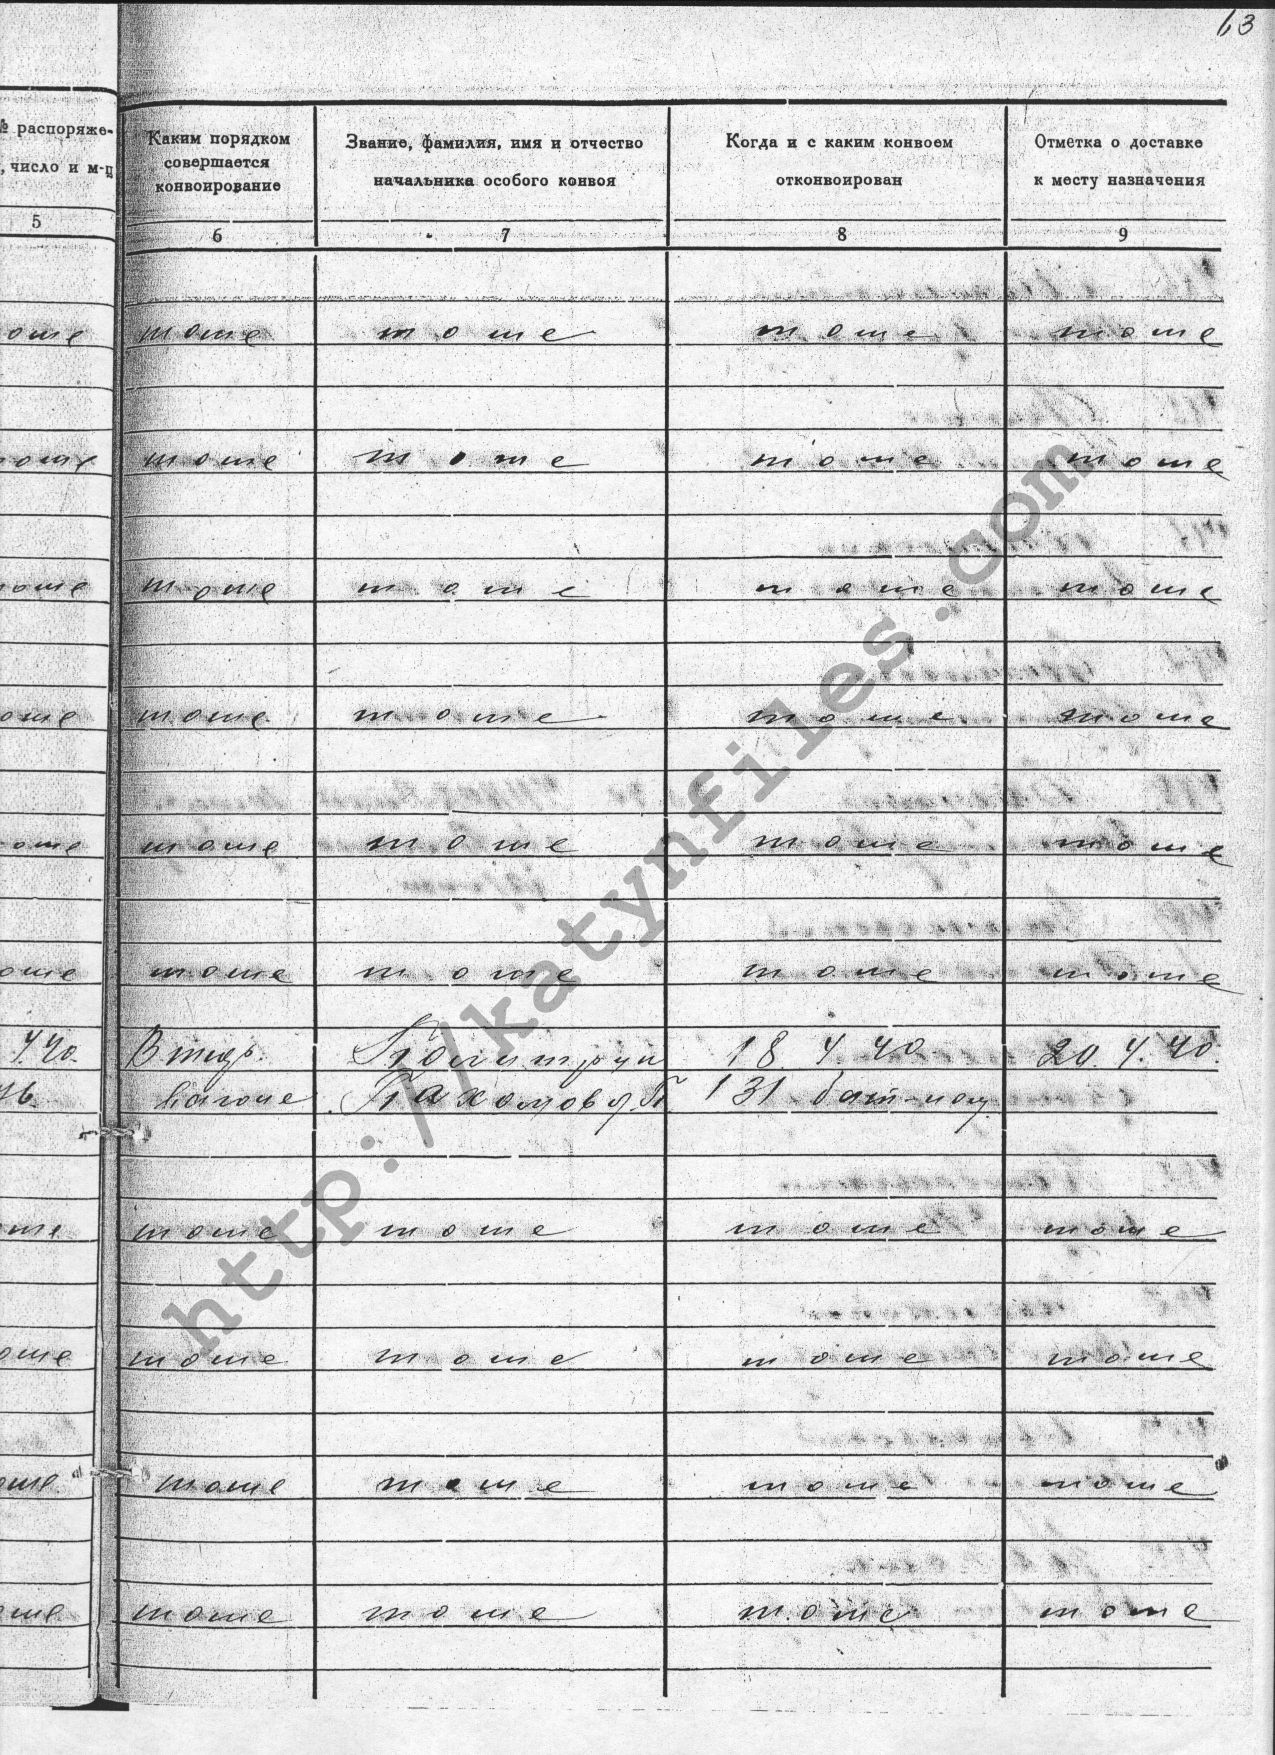 63
№ распоряже-
, число и м-ц
Каким порядком
совершается
конвоирование
Звание, фамилия, имя и отчество
начальника особого конвоя
Когда и с каким конвоем
отконвоирован
Отметка о доставке
к месту назначения
5 6 7 8 9
оже тоже тоже тоже тоже
тоже тоже тоже тоже тоже
тоже тоже тоже тоже тоже
оже тоже тоже тоже тоже
тоже тоже тоже тоже тоже
оже тоже тоже тоже тоже
4.40. В тюр. Политрук 18 4 40 20.4.40.
вагоне Пахомов 131 бат-ном
же тоже тоже тоже тоже
оже тоже тоже тоже тоже
оже тоже тоже тоже тоже
же тоже тоже тоже тоже
http://katynfiles.com